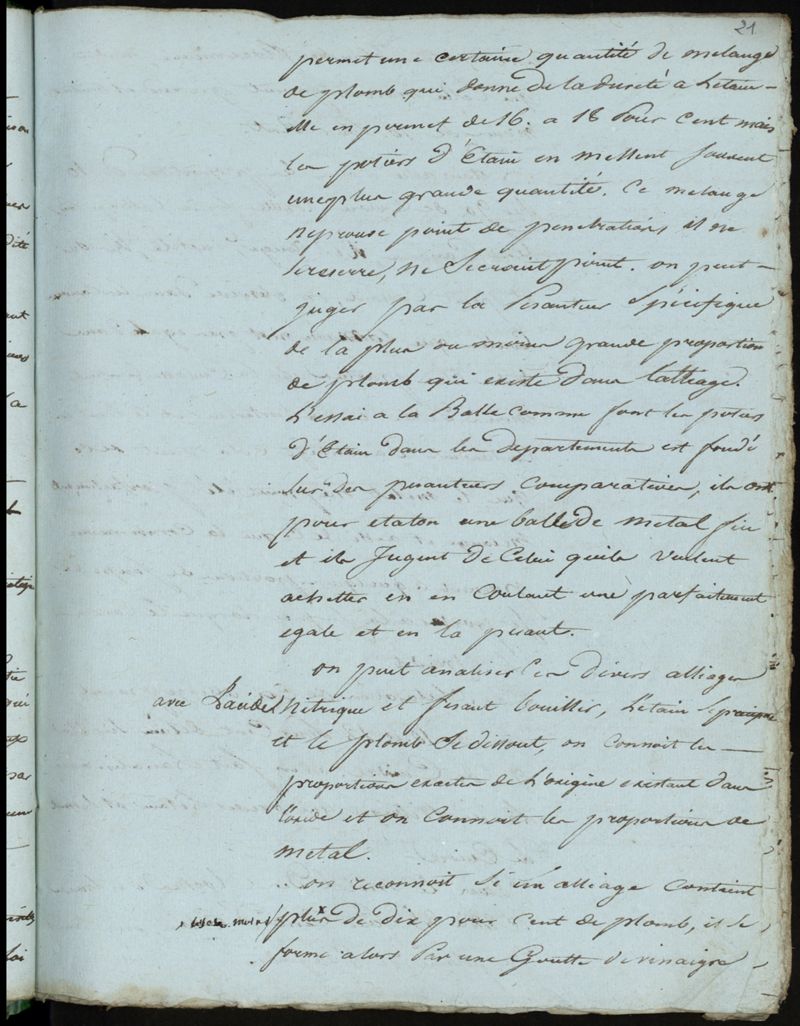 21
permet une certaine quantité de melange
de plomb qui donne de la dureté a Letain –
elle en permet de 16. a 18 Pour Cent mais
les potiers d'Etain en mettent souvent
une plus grande quantité. Ce melange
neprouve point de penetrations il ne
se resserre, ne Secroit point. on peut –
juger par la Pesanteur Spécifique
de la plus ou moins grande proportion
de plomb qui existe dans l'alliage.
L'essai a la Balle comme font les potiers
d'Etain dans les departements est fondé
Sur des pesanteurs comparatives, ils ont
pour etalon une balle de metal fin
et ils Jugent de Celui quils veulent
achetter en en Coulant une parfaitement
egale et en la pesant.
on peut analiser Ces divers alliages
avec L'acide nitrique et fesant bouillir, L'etain Se précipite
et le plomb Se dissout, on Connoit les –
proportions exactes de L'oxigene existant dans
l'oxide et on Connoit les proportions de
metal.
on reconnoit Si un alliage contient
plus de dix pour cent de plomb, il se
forme alors Par une Goutte de vinaigre